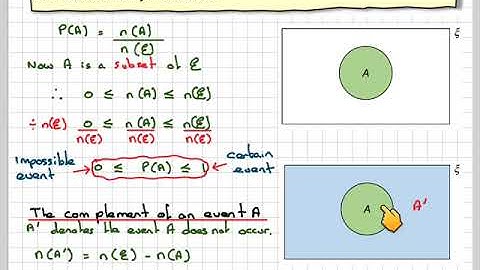 P(A) = n(A)/n(ξ)
Now A is a subset of ξ
∴ 0 ≤ n(A) ≤ n(ξ)
÷n(ξ) 0/n(ξ) ≤ n(A)/n(ξ) ≤ n(ξ)/n(ξ)
Impossible event 0 ≤ P(A) ≤ 1 certain event
The complement of an event A
A' denotes the event A does not occur.
n(A') = n(ξ) - n(A)
ξ
A
ξ
A
A'